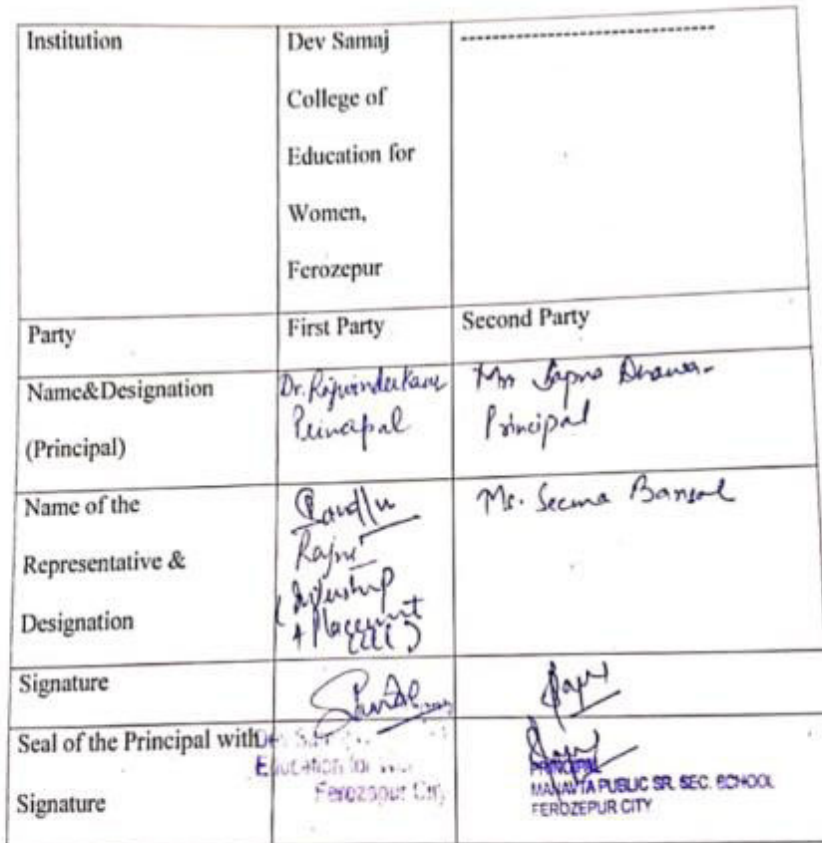 Institution
Dev Samaj
College of
Education for
Women,
Ferozepur
--------------------------------
Party
First Party
Second Party
Name&Designation
(Principal)
Dr. Rajwinder Kaur
Principal
Principal
Name of the
Representative &
Designation
Rajni
Ms. Seema Bansal
Signature
Seal of the Principal with
Signature
Education for
Ferozepur City
PRINCIPAL
MANAVTA PUBLIC SR. SEC. SCHOOL
FEROZEPUR CITY